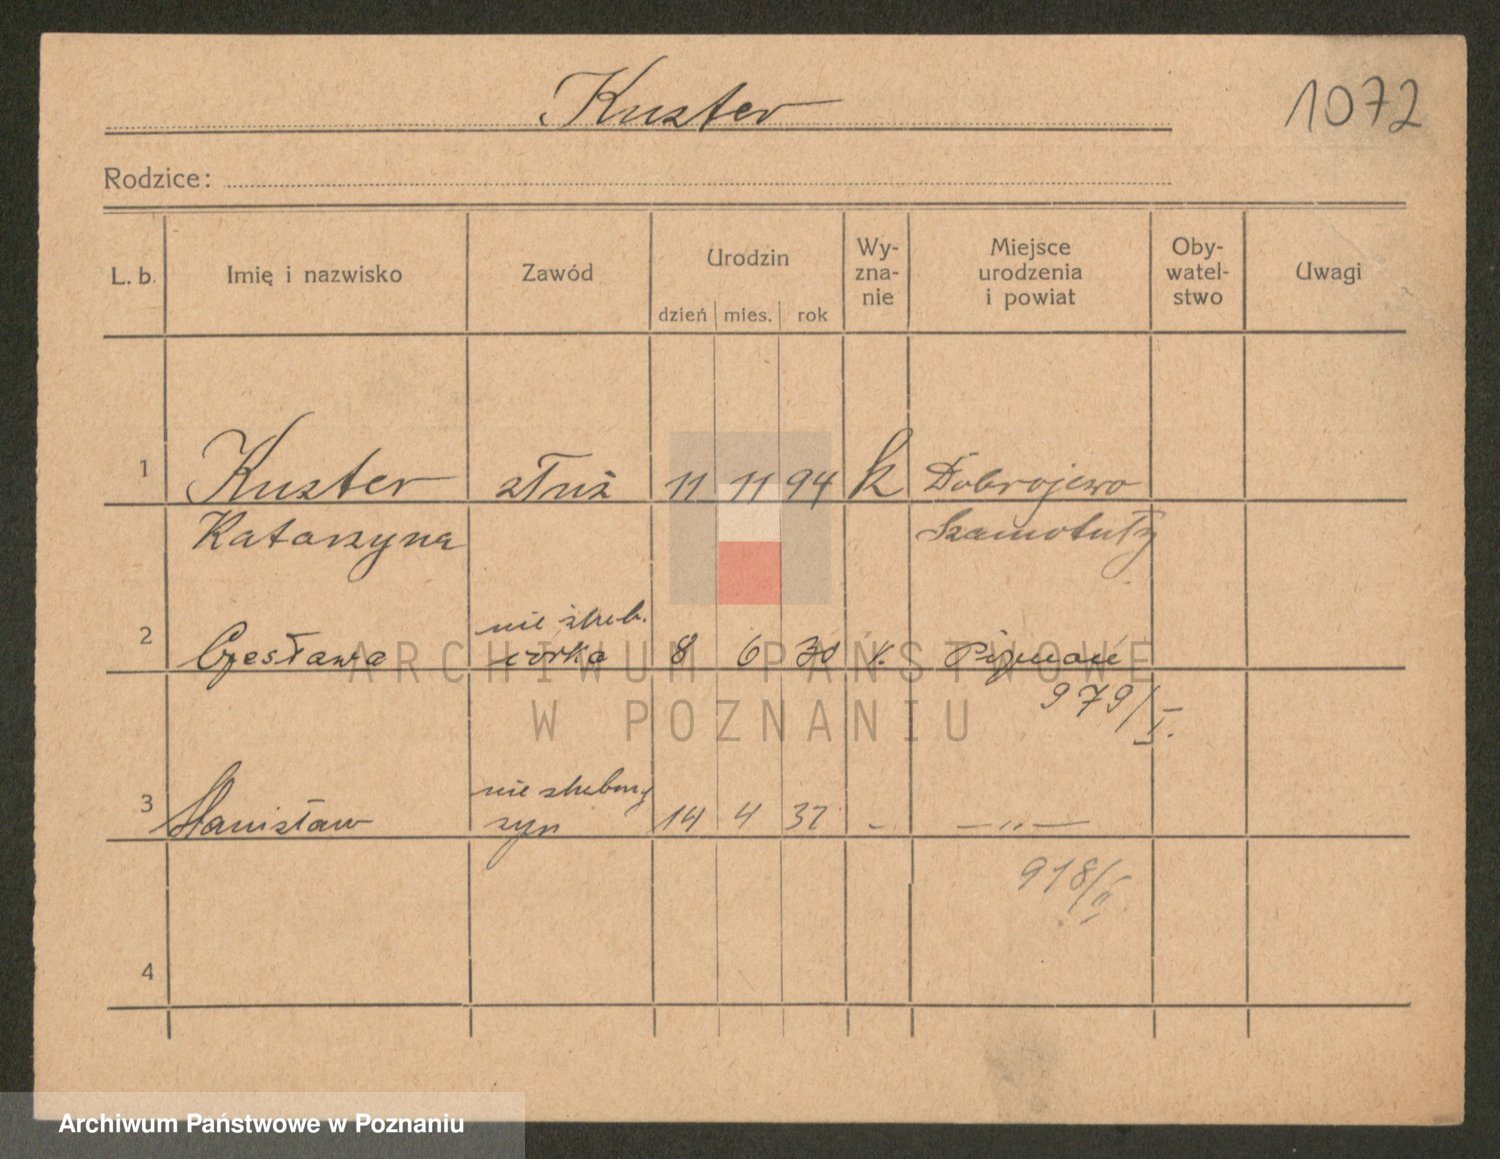 Kuster
1072
Rodzice:
L. b. Imię i nazwisko Zawód Urodzin Wy- Miejsce Oby- Uwagi
zna- urodzenia watel-
dzień mies. rok nie i powiat stwo
1 Kuster służ 11 11 94 k Dobrojewo
Katarzyna Szamotuły
nieślub.
2 Czesława córka 8 6 30 k. Poznań
979/I.
nieślubny
3 Stanisław syn 14 4 32 - —„—
918/II
4
ARCHIWUM PAŃSTWOWE
W POZNANIU
Archiwum Państwowe w Poznaniu